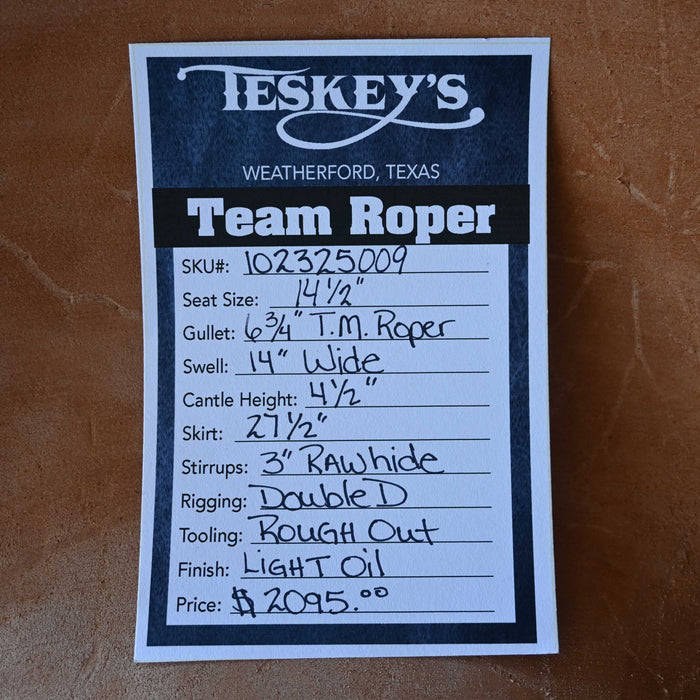 TESKEY'S
WEATHERFORD, TEXAS
Team Roper
SKU#: 102325009
Seat Size: 14 1/2"
Gullet: 6 3/4" T.M. Roper
Swell: 14" Wide
Cantle Height: 4 1/2"
Skirt: 27 1/2"
Stirrups: 3" RAWhide
Rigging: Double D
Tooling: ROUGH Out
Finish: LIGHT Oil
Price: $ 2095.00